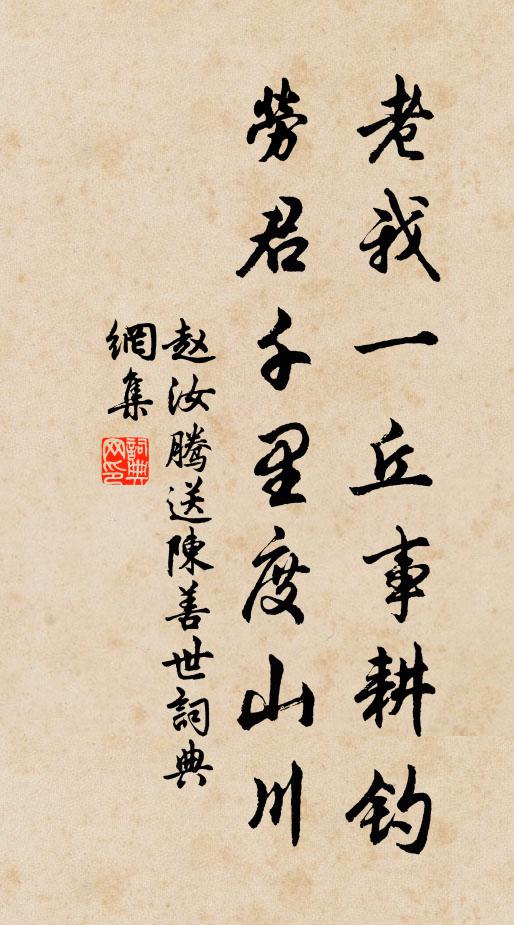 老我一丘事耕钓
劳君千里度山川
赵汝腾送陳善世詞典
網集
詞典
网印